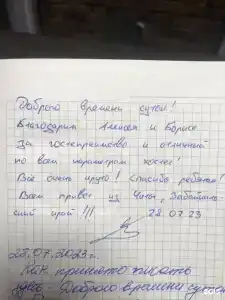 Доброго времени суток!
Благодарим Алексея и Бориса
За гостеприимство и отличный
по всем параметрам хостел!
Всё очень круто! Спасибо ребятам!
Всем привет из Читы, Забайкаль-
ский край!!!
22.07.23
23.07.2023г.
принято писать
- Доброго времени суток